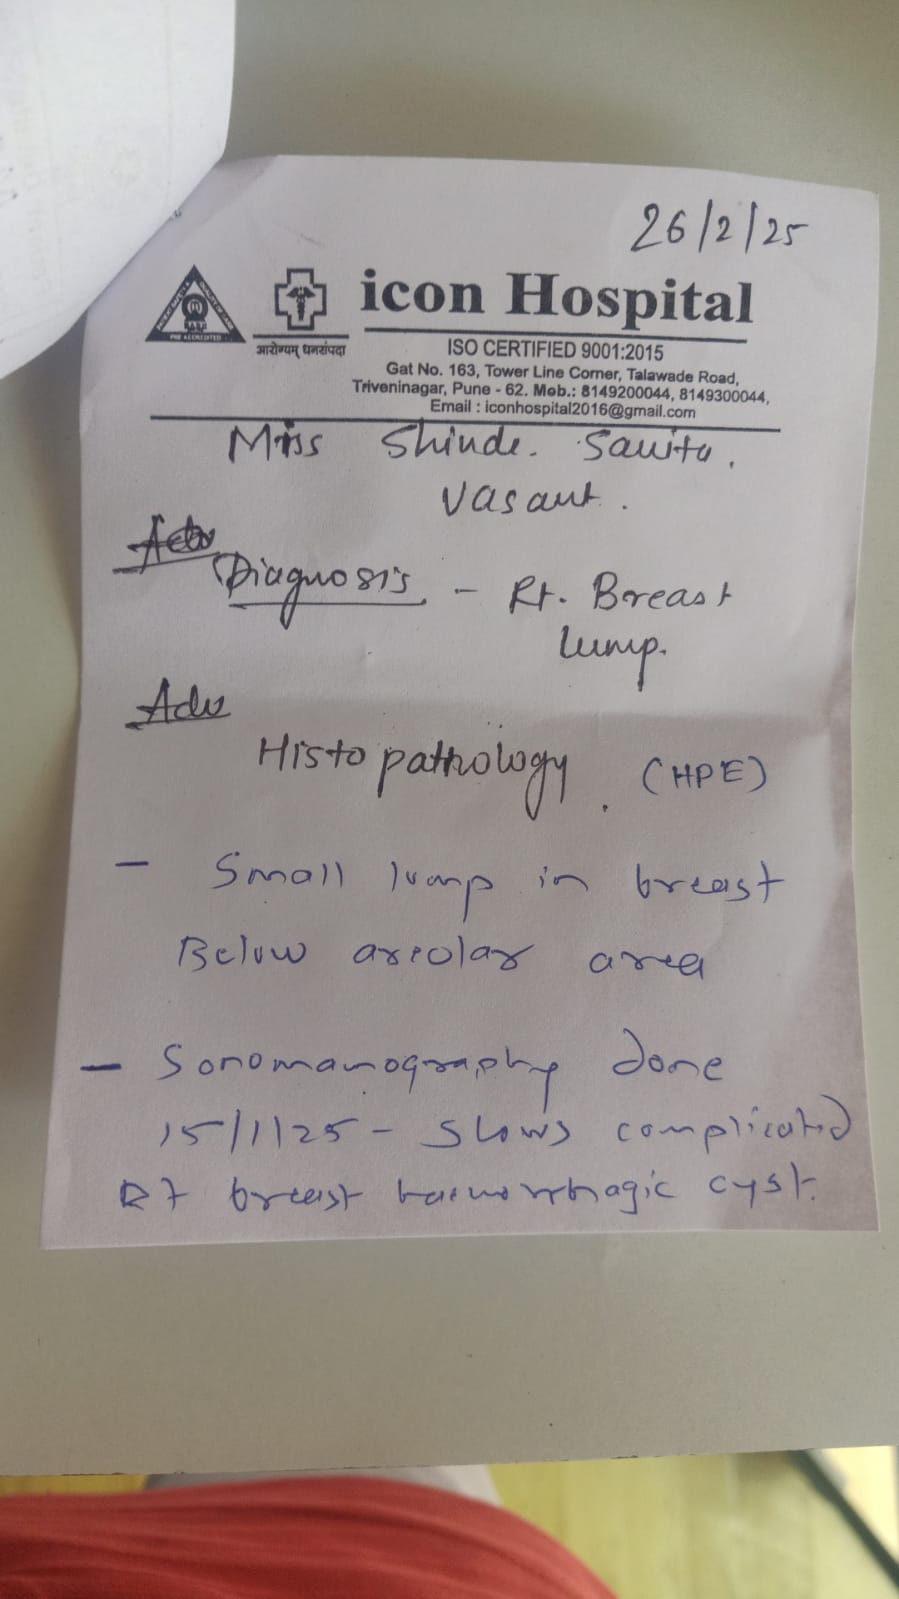 26/2/25
icon Hospital
आरोग्यम् धनसंपदा
ISO CERTIFIED 9001:2015
Gat No. 163, Tower Line Corner, Talawade Road,
Triveninagar, Pune - 62. Mob.: 8149200044, 8149300044,
Email : iconhospital2016@gmail.com
Miss Shinde. Savita.
Vasant.
Diagnosis. - Rt. Breast
lump.
Adv
Histopathology. (HPE)
- Small lump in breast
Below areolar area
- Sonomamography done
15/1/25 - Shows complicated
Rt breast haemorrhagic cyst.